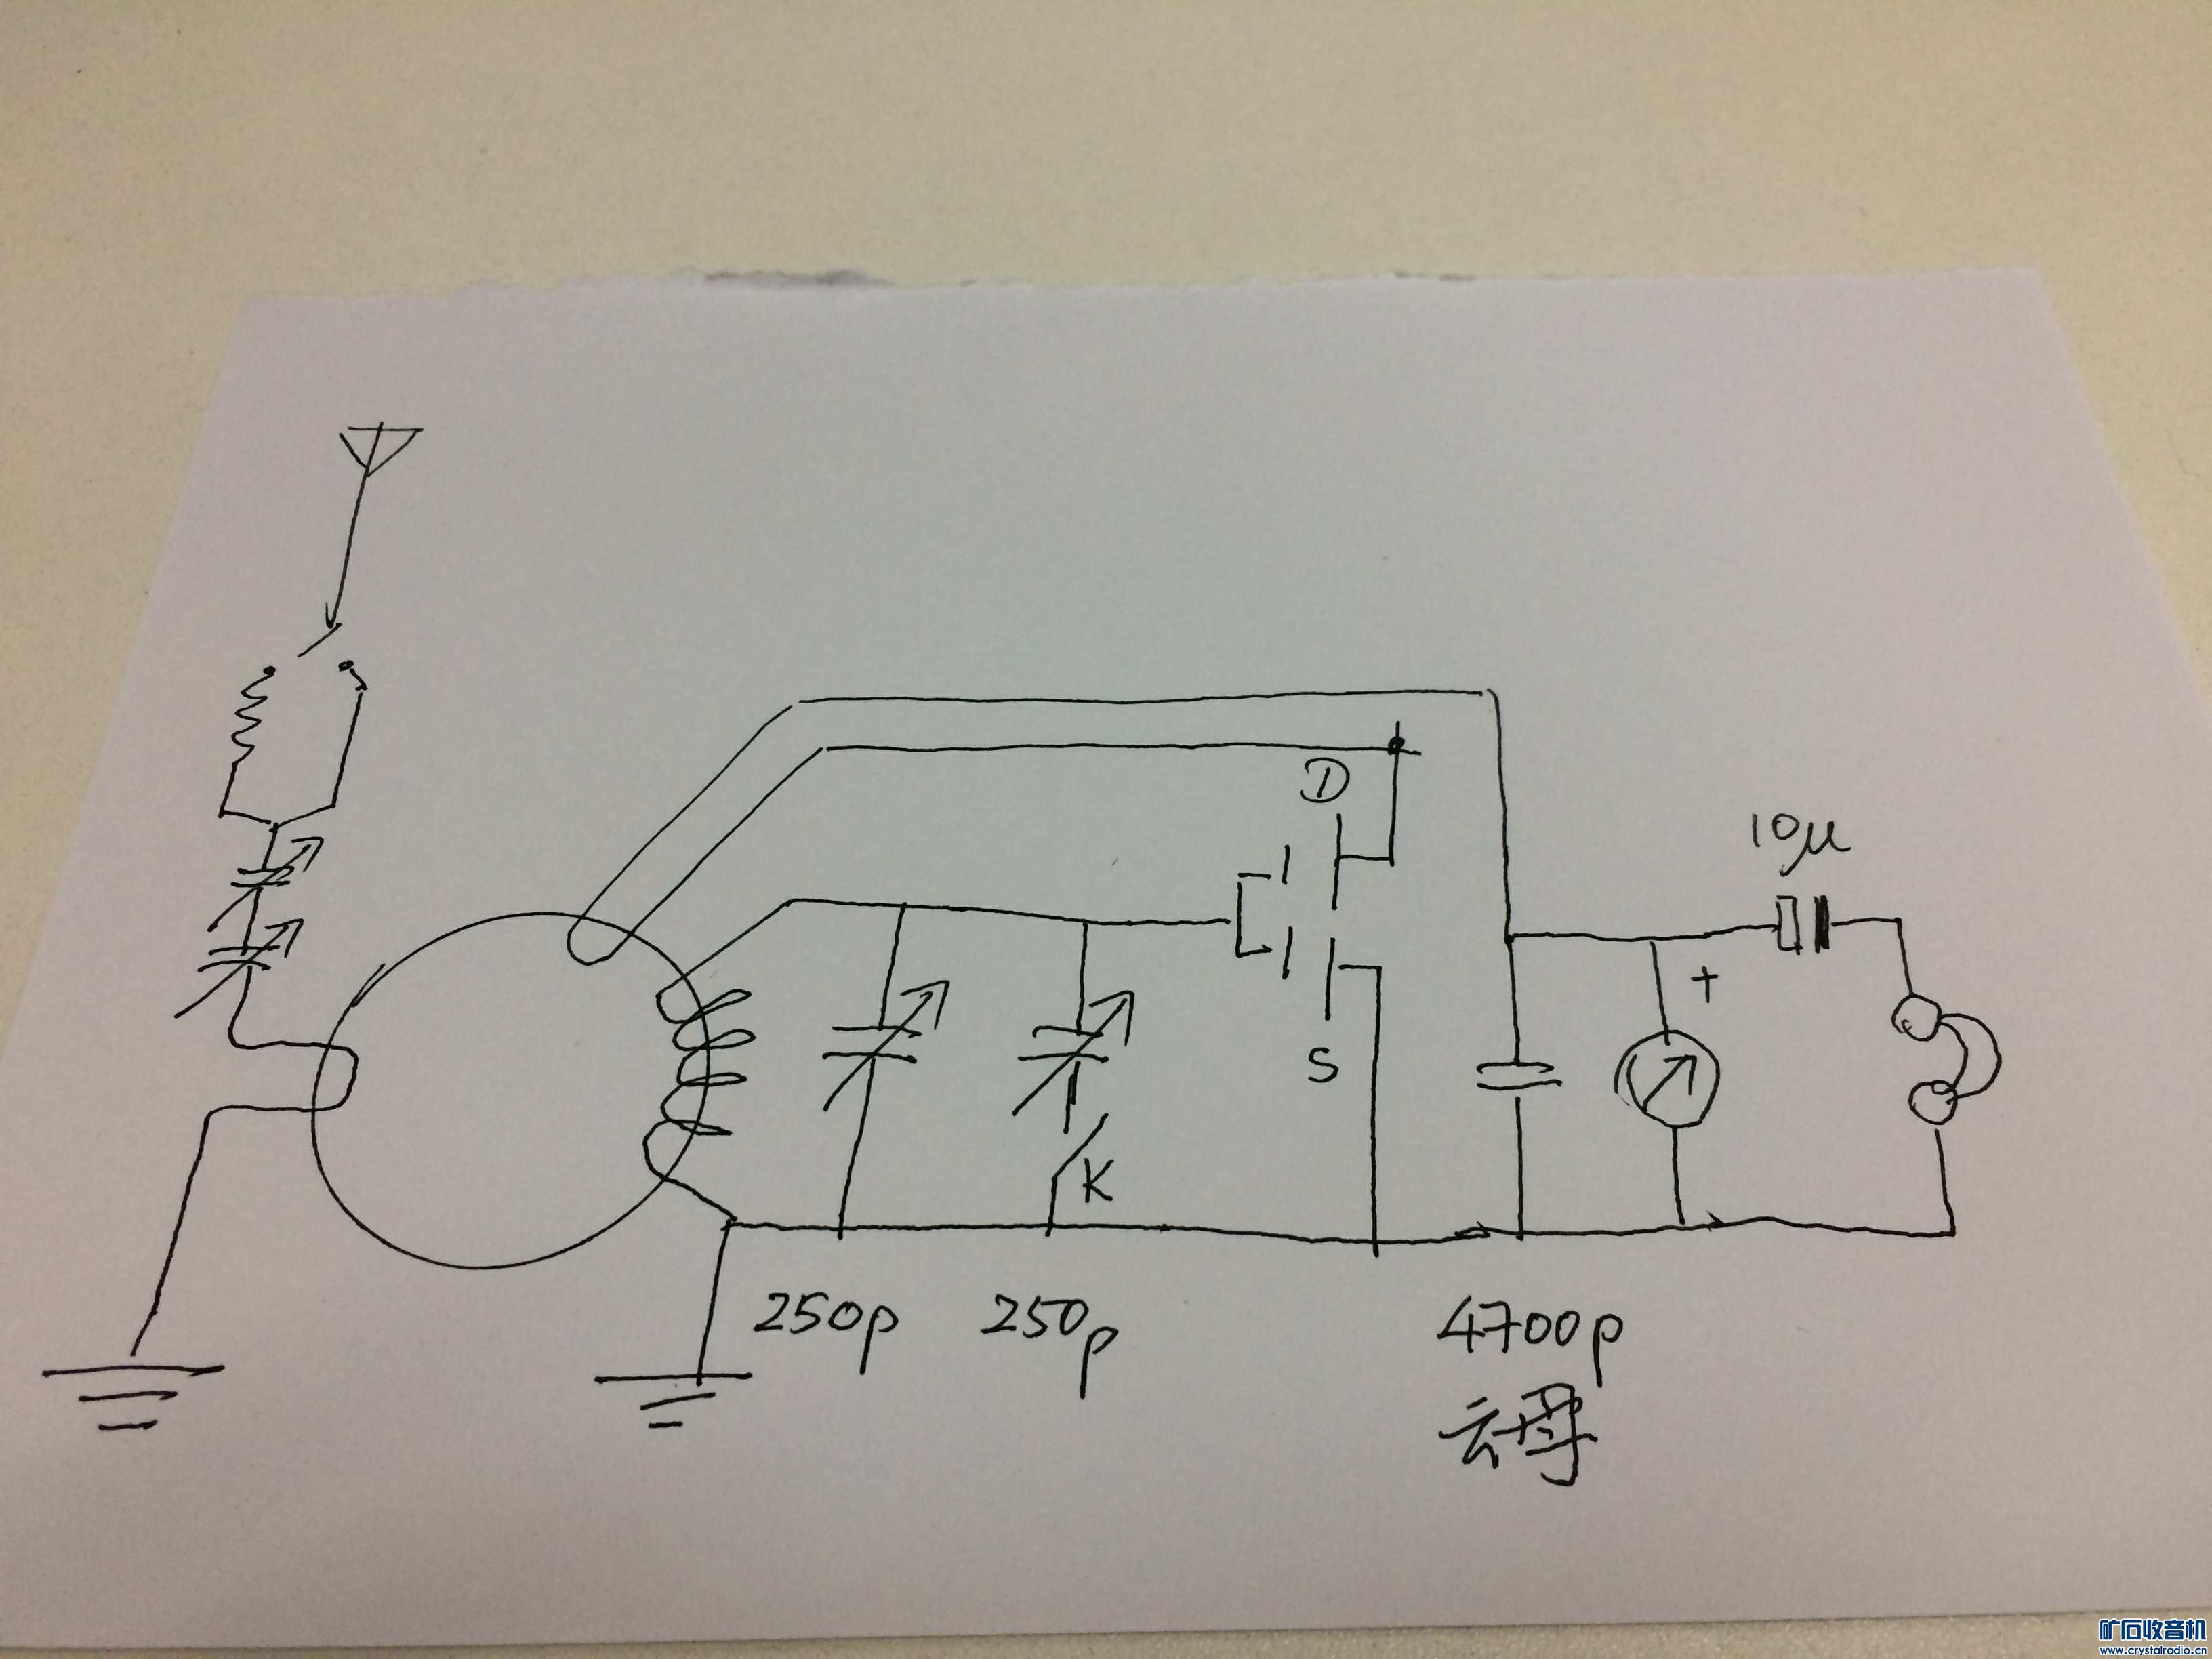 D
10μ
+
S
K
250p 250p 4700p
云母
矿石收音机
www.crystalradio.cn